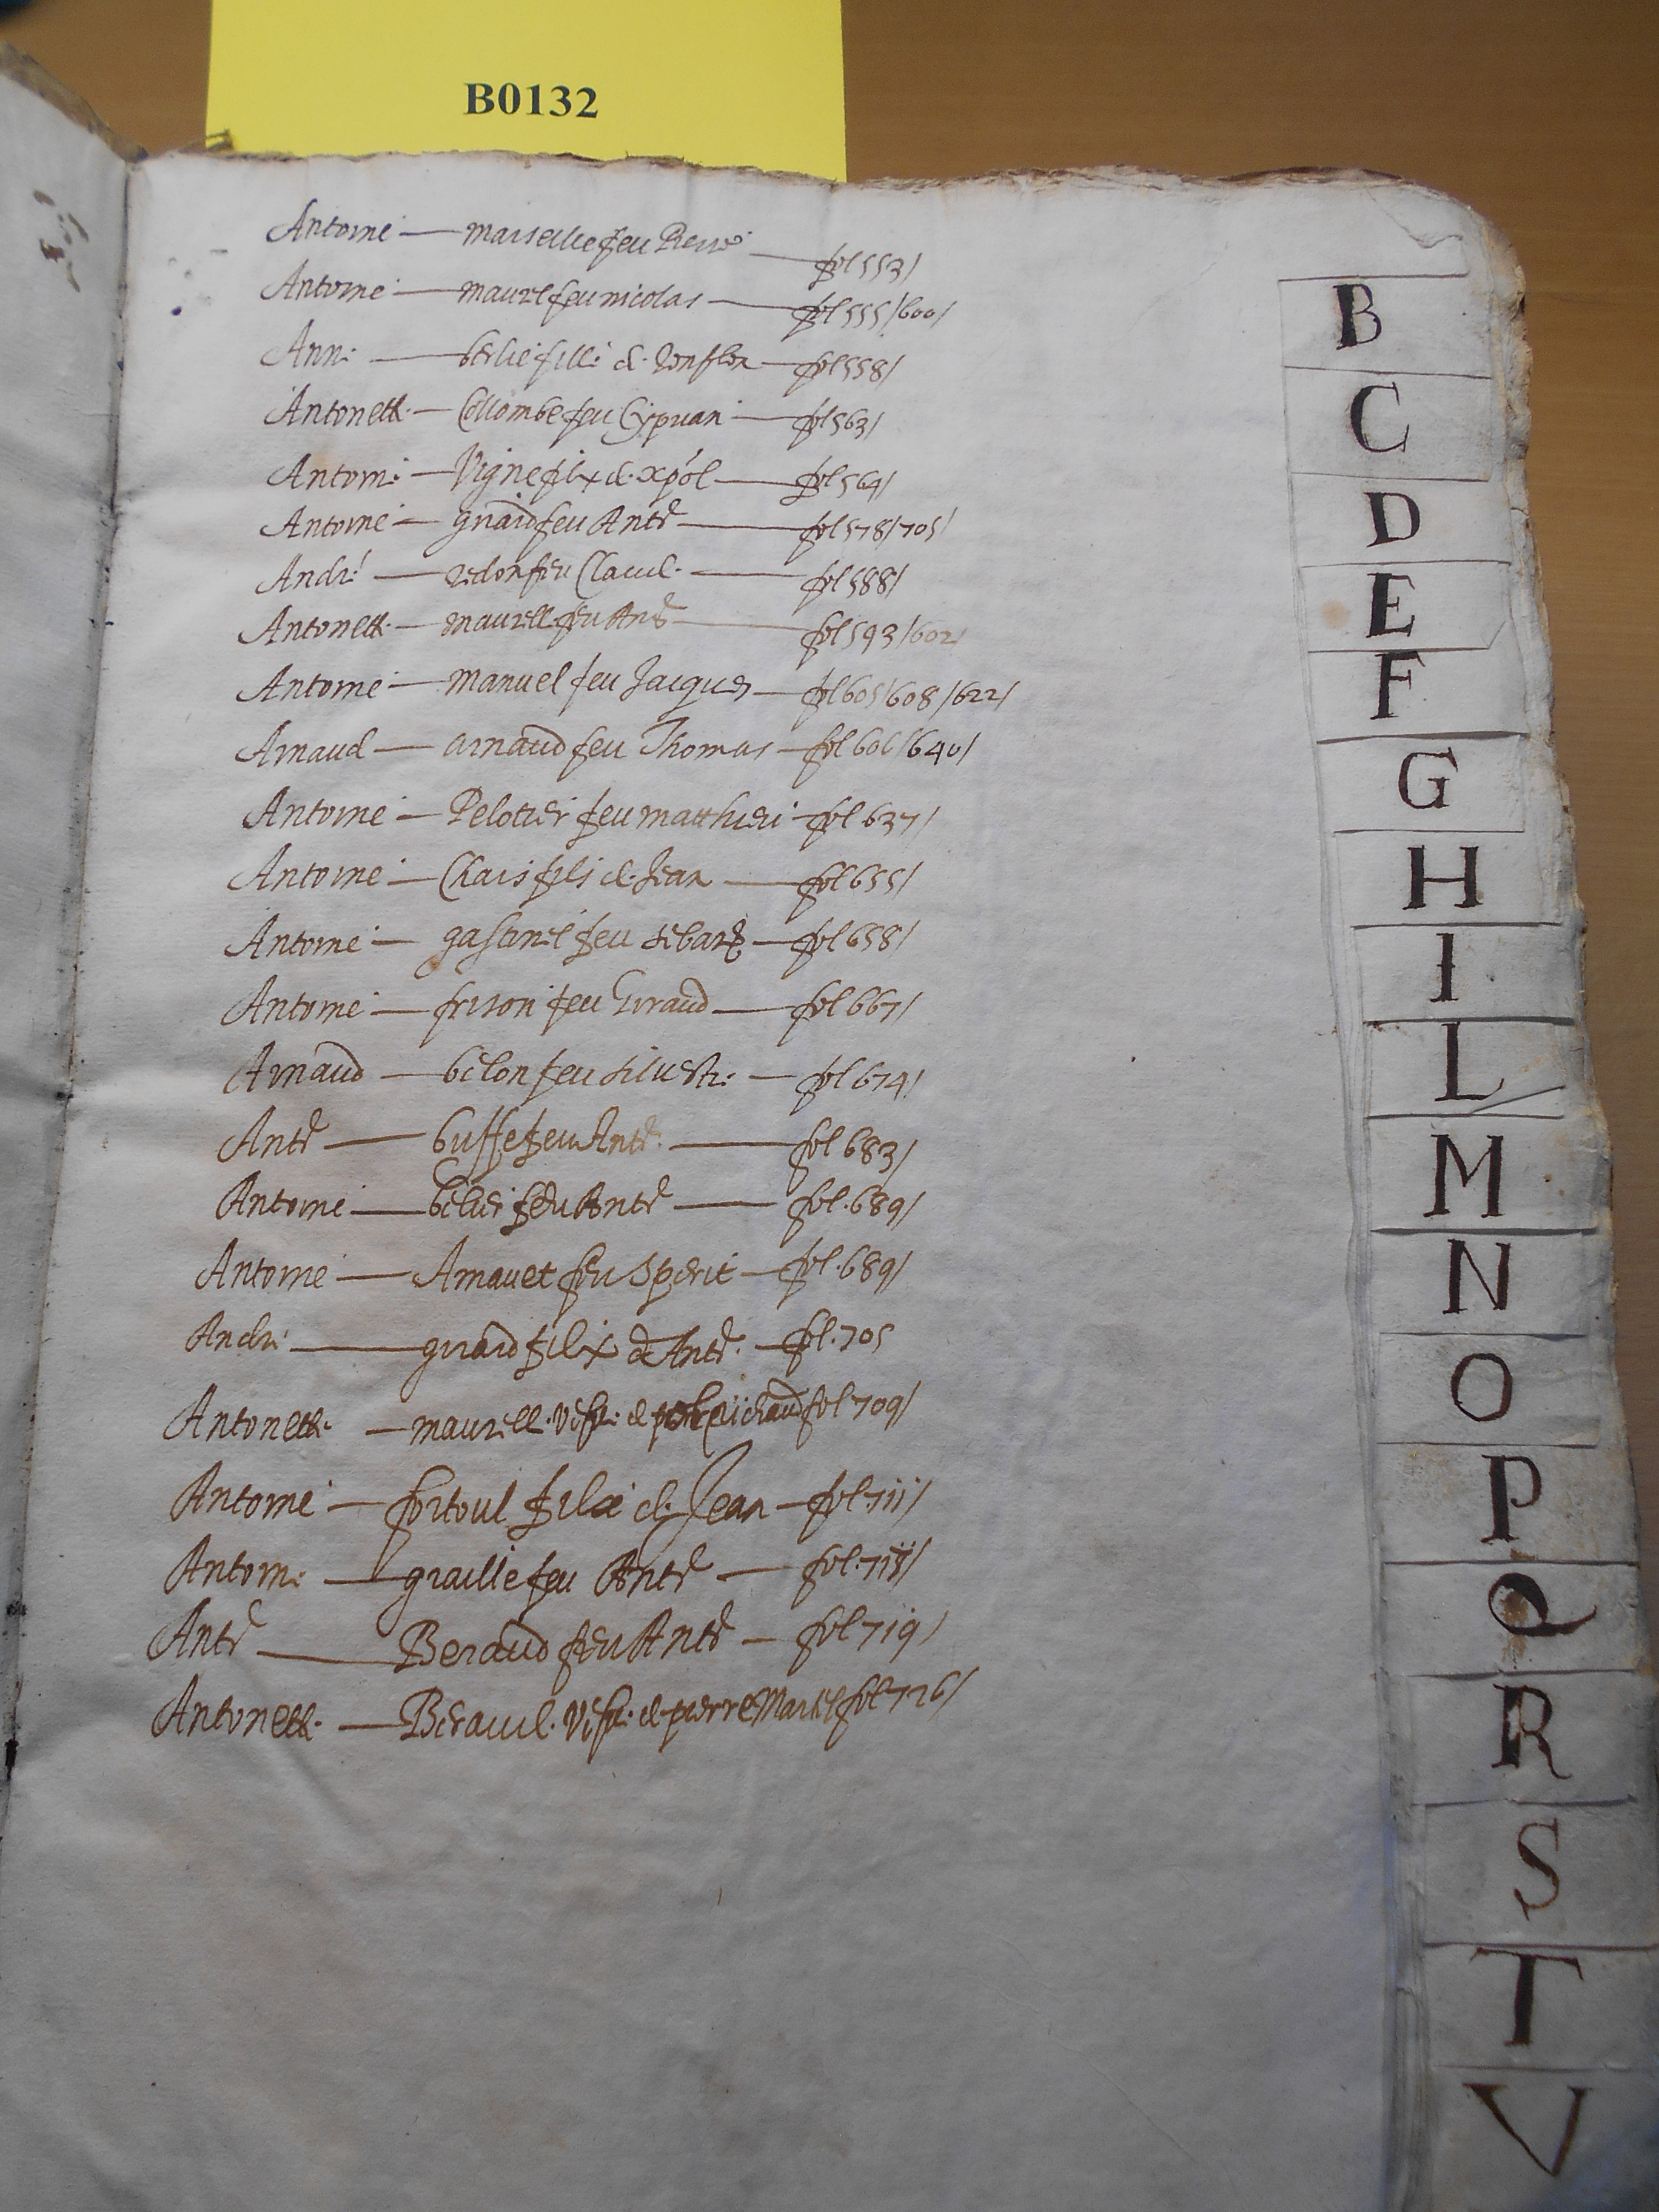 B0132
Antoine — marseille feu Pierre — fol 553/
Antoine — maurel feu nicolas — fol 555/600/
Anne — berlie fille de — fol 558/
Antonette — Collombe feu Cyprian — fol 563/
Antoine — Vigne filx de xpol — fol 564/
Antoine — giraud feu Antᵉ — fol 578/705/
André — redon feu Claude — fol 588/
Antonette — maurelle feu Antᵉ — fol 593/602/
Antoine — manuel feu Jacques — fol 605/608/622/
Arnaud — arnaud feu Thomas — fol 606/640/
Antoine — Pelotier feu matthieu — fol 637/
Antoine — Chais fils de Jean — fol 655/
Antoine — gastinel feu — fol 658/
Antoine — frison feu Giraud — fol 667/
Arnaud — belon feu silvestre — fol 674/
Antᵉ — buffe feu Antᵉ — fol 683/
Antoine — belier feu Antᵉ — fol. 689/
Antoine — Arnavet feu Sperit — fol. 689/
André — giraud filx de Antᵉ — fol. 705
Antonette — maurelle vefve de fol 709/
Antoine — fortoul de Jean — fol 711/
Antoine — graille feu Antᵉ — fol.
Antᵉ — Beraud feu Antᵉ — fol 719/
Antonette — Beraude vefve de pierre Martel fol 726/
B
C
D
E
F
G
H
I
L
M
N
O
P
Q
R
S
T
V